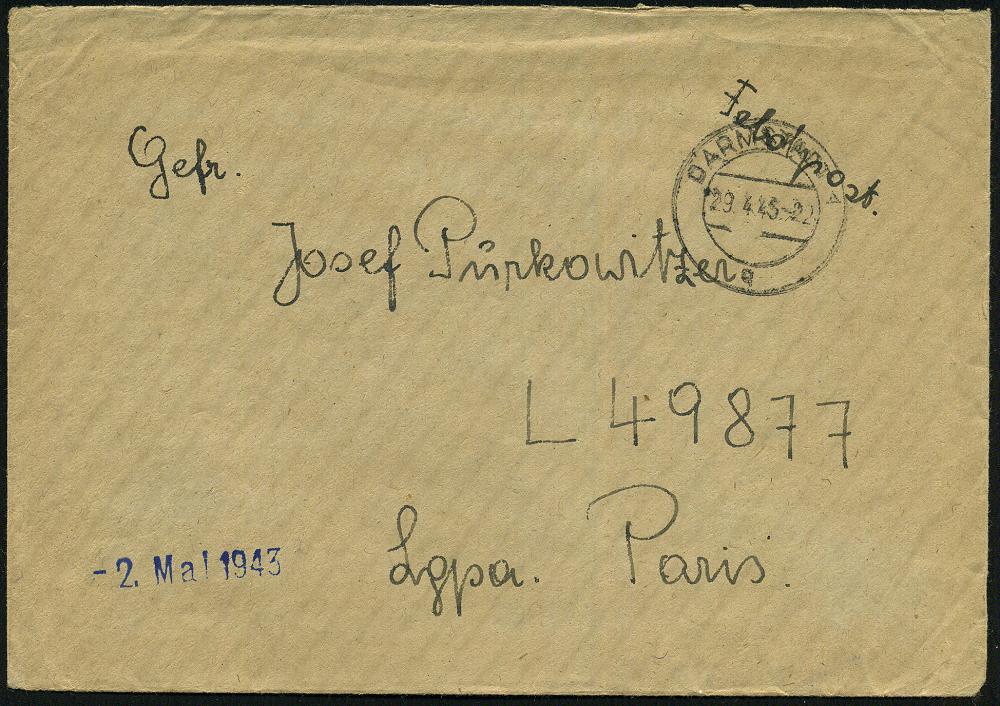 Feldpost.
DARMSTADT
29.4.43.-22
q
Gefr.
Josef Pürkowitzer
L 49877
Lgpa. Paris.
-2. Mai 1943